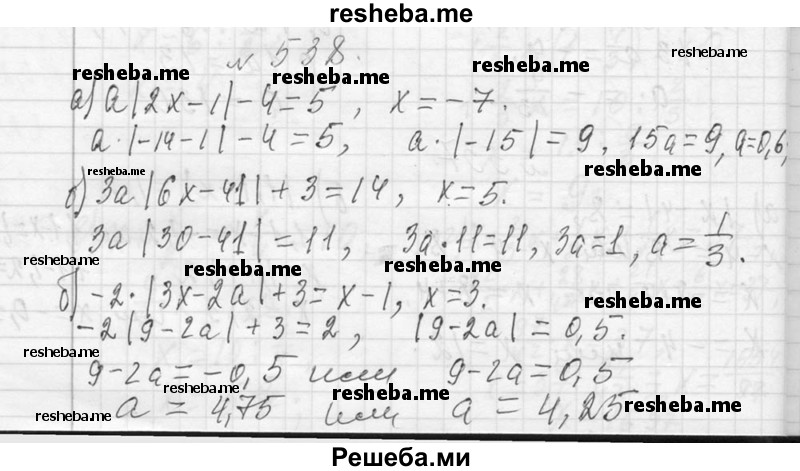 resheba.me
№ 538.
resheba.me
resheba.me resheba.me
а) a|2x-1|-4=5, x=-7.
resheba.me
a·|-14-1|-4=5, a·|-15|=9, 15a=9, a=0,6;
resheba.me resheba.me
б) 3a|6x-41|+3=14, x=5.
resheba.me
3a|30-41|=11, 3a·11=11, 3a=1, a=1/3.
resheba.me resheba.me resheba.me
б) -2·|3x-2a|+3=x-1, x=3.
resheba.me
-2|9-2a|+3=2, |9-2a|=0,5.
resheba.me resheba.me
9-2a=-0,5 или 9-2a=0,5
resheba.me
a=4,75 или a=4,25
resheba.me resheba.me
Решеба.ми